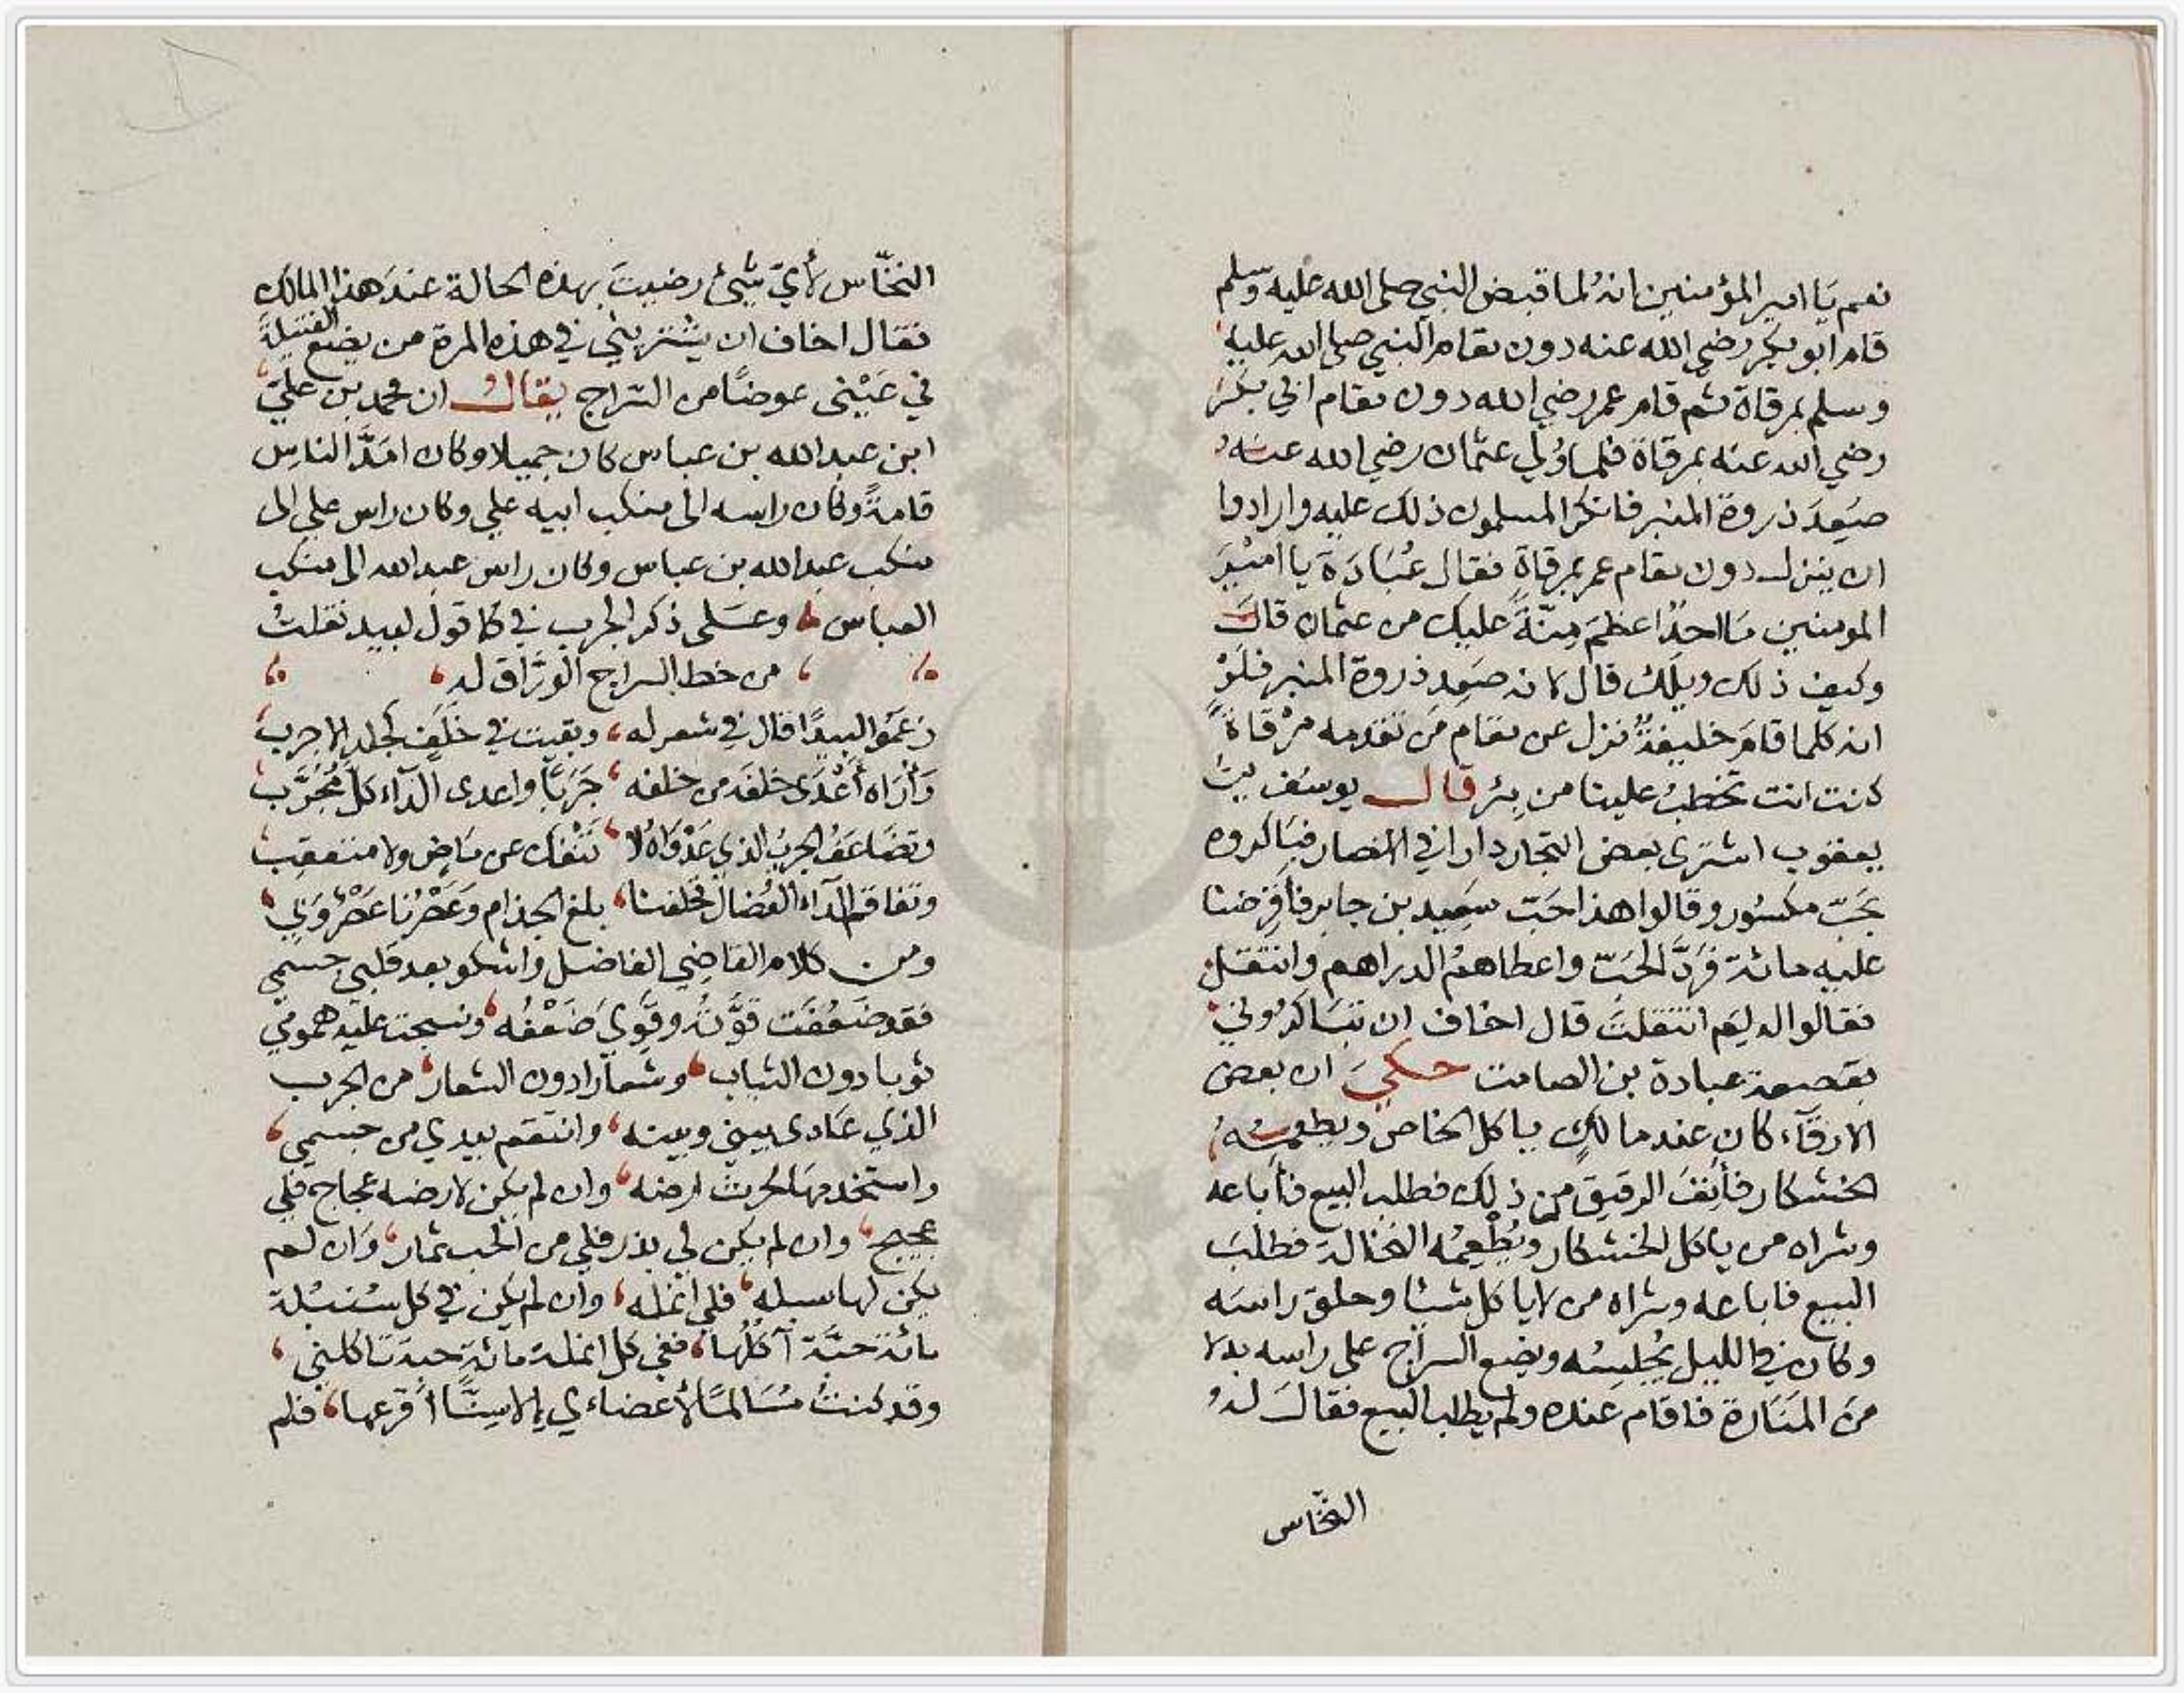 نعم يا امير المؤمنين انه لما قبض النبي صلى الله عليه وسلم
قام ابو بكر رضي الله عنه دون مقام النبي صلى الله عليه
وسلم بمرقاة ثم قام عمر رضي الله دون مقام ابي بكر
رضي الله عنه بمرقاة فلما وُلي عثمان رضي الله عنه
صَعِدَ ذروة المنبر فانكر المسلمون ذلك عليه وارادوا
ان ينزل دون مقام عمر بمرقاة فقال عُبَادَة يا امير
المومنين ما احدٌ اعظمَ مِنّةً عليك من عثمان قال
وكيف ذلك ويلك قال لانه صَعِد ذروة المنبر فلوْ
انه كلما قامَ خليفةٌ نزل عن مقام مَن تقدمه مرْقاةً
كنت انت تخطبُ علينا من بئر قال يوسف بن
يعقوب اشترى بعض التجار دارا في الانصار فتباكروه
بحَبّ مكسور وقالوا هذا حَبّ سعيد بن جابر فاقرضنا
عليه مائة فردَّ الحَبّ واعطاهمُ الدراهم وانتقل
فقالوا له لِمَ انتقلتَ قال اخاف ان تتباكروني
بقصعة عبادة بن الصامت حكيَ ان بعض
الارقآء كان عند مالكٍ ياكل الخاص ويطعمه
الخشكار فأنِفَ الرقيق من ذلك فطلب البيع فأباعه
وشراه من ياكل الخشكار ويُطْعِمُه النخالة فطلبَ
البيع فاباعه وشراه من لا ياكل شيئا وحلق راسه
وكان في الليل يُجلِسُه ويضع السراج على راسه بدلا
منَ المنارة فاقام عنده ولم يطلب البيع فقال له
النخّاس
النخّاس لأيّ شيئ رضيتَ بهذه الحالة عند هذا المالك
فقال اخاف ان يشتريني في هذه المرة من يضع الفتيلة
في عَيْنى عوضًا من السّراج يقال ان محمد بن عليّ
ابن عبد الله بن عباس كان جميلا وكان امَدَّ الناس
قامةً وكان راسه الى منكب ابيه علي وكان راس علي الى
منكب عبد الله بن عباس وكان راس عبد الله الى منكب
العباس وعلى ذكر الجرب في كا قول لبيد نقلت
من خط السراج الورّاق له
زعمُوا لبيدًا قال في شعر له وبقيت في خَلَفٍ كجلد الاجرب
وَأرَاه أعْدَى خلفَه من خلفه جَرَبًا واعدى الدآء كلَّ مُجَرَّب
وتضَاعَفُ الجربُ الذي عَدْوَاهُ لا تَنْفك عن مَاضٍ ولا متعقب
وتفاقم الدآء العُضال فخلفنا بلغ الجذام وعَصْرُنا عَصْر وَبي
ومن كلام القاضي الفاضل واشكو بعد قلبي جسمي
فقد ضَعُفَت قوَّتُه وقَوِيَ ضَعْفُه ونسجت عليه همومي
ثوبا دون الثياب وشعارا دون الشعار من الجرب
الذي عَادى بيني وبينه وانتقم بيدي من جسمي
واستخدمها لحرث ارضه وان لم يكن لارضه عجاج فلي
عجيج وان لم يكن لي بذر فلي من الحب ثمار وَان لم
يكن لها سبله فلي انمله وان لم يكن في كل سُنبُلة
مائة حبَّة آكلُها ففي كل انملة مائة حبة تاكلني
وقد كنتُ مُسَالمًا لأعضاءي الا سِنًّا أقرعها فلم